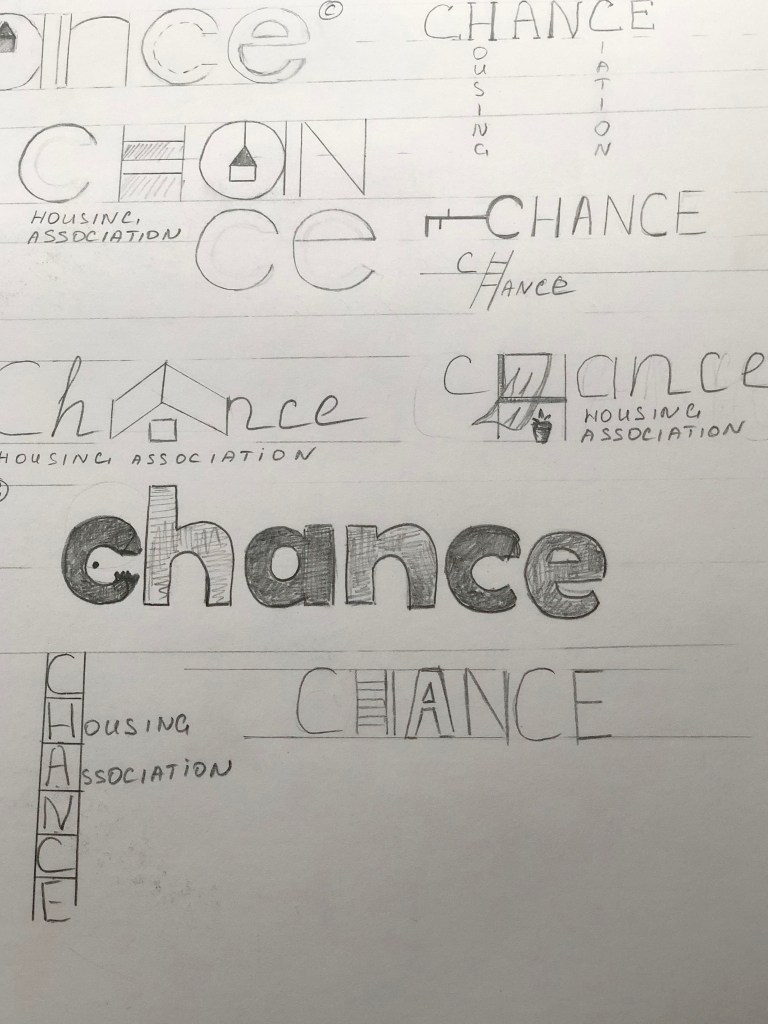 ance ©
CHANCE
OUSING
IATION
CHAN
ce
HOUSING
ASSOCIATION
CHANCE
CHANCE
Chance
HOUSING ASSOCIATION
CHance
HOUSING
ASSOCIATION
chance
CHANCE
HOUSING
ASSOCIATION
CHANCE